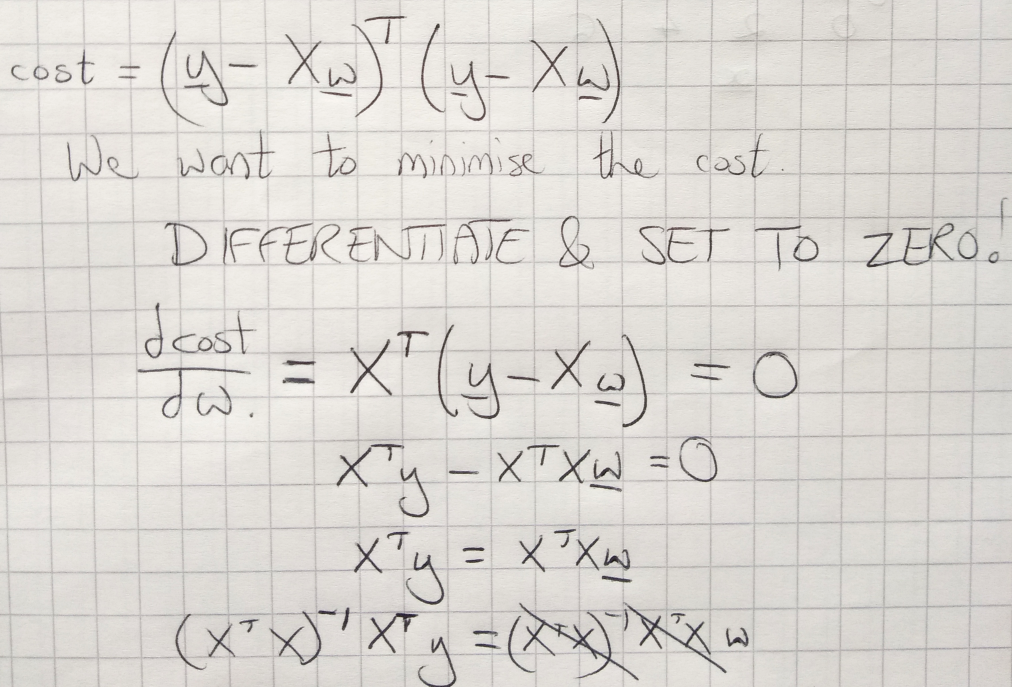 cost = (y - Xw)ᵀ (y - Xw)
We want to minimise the cost.
DIFFERENTIATE & SET TO ZERO!
dcost/dw. = Xᵀ(y - Xw) = 0
Xᵀy - XᵀXw = 0
Xᵀy = XᵀXw
(XᵀX)⁻¹ Xᵀy = (XᵀX)⁻¹ XᵀX w